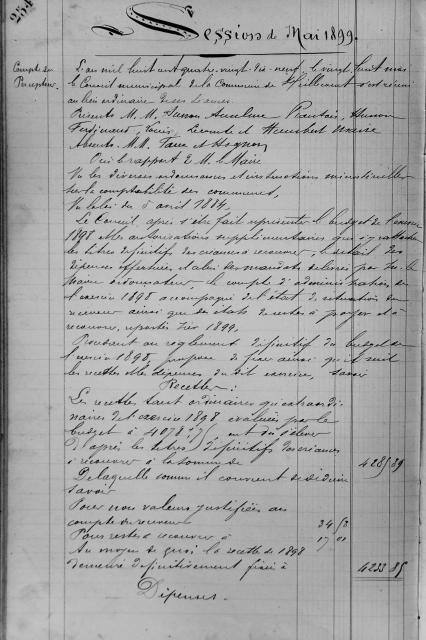 254
Session de Mai 1899.
Compte du
Percepteur.
L'an mil huit cent quatre-vingt-dix-neuf, le vingt huit mai
le Conseil municipal de la Commune de s'est réuni
au lieu ordinaire de ses séances.
Présents M. M. Husson
Ferdinand, Louis, et Humbert Maire
Absents. M. M. et
Ouï le rapport de M. le Maire
Vu les diverses ordonnances et instructions ministérielles
sur la comptabilité des communes,
Vu la loi du 5 avril 1884,
Le Conseil, après s'être fait représenter le budget de l'exercice
1898 et les autorisations supplémentaires qui s'y rattachent
les titres définitifs des créances à recouvrer, le détail des
dépenses effectuées, et celui des mandats délivrés par M. le
Maire ordonnateur, le compte d'administration de
l'exercice 1898 accompagné de l'état de situation du
receveur ainsi que des états de restes à payer et à
recouvrer, reportés sur 1899,
Procédant au règlement définitif du budget de
l'exercice 1898, propose de fixer ainsi qu'il suit
les recettes et les dépenses du dit exercice, savoir
Recettes:
Les recettes tant ordinaires qu'extraordi-
naires de l'exercice 1898 évaluées par le
budget à 4078f75 ont dû s'élever
d'après les titres définitifs des créances
à recouvrer à la somme de 4285 39
De laquelle somme il convient de déduire
savoir
Pour non valeurs justifiées au
compte du receveur 34 52
Pour restes à recouvrer à 17 00
Au moyen de quoi la recette de 1898
demeure définitivement fixée à 4233 85
Dépenses.